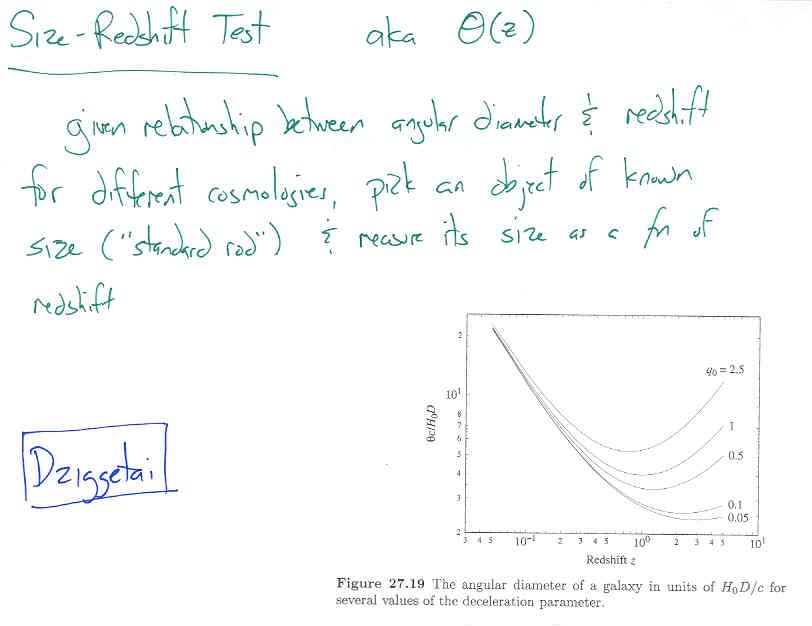 Size-Redshift Test aka Θ(z)
given relationship between angular diameter & redshift
for different cosmologies, pick an object of known
size ("standard rod") & measure its size as a fn of
redshift
Dziggetai
q₀ = 2.5
1
0.5
0.1
0.05
θc/H₀D
2
10¹
8
7
6
5
4
3
2
3 4 5 10⁻¹ 2 3 4 5 10⁰ 2 3 4 5 10¹
Redshift z
Figure 27.19 The angular diameter of a galaxy in units of H₀D/c for
several values of the deceleration parameter.